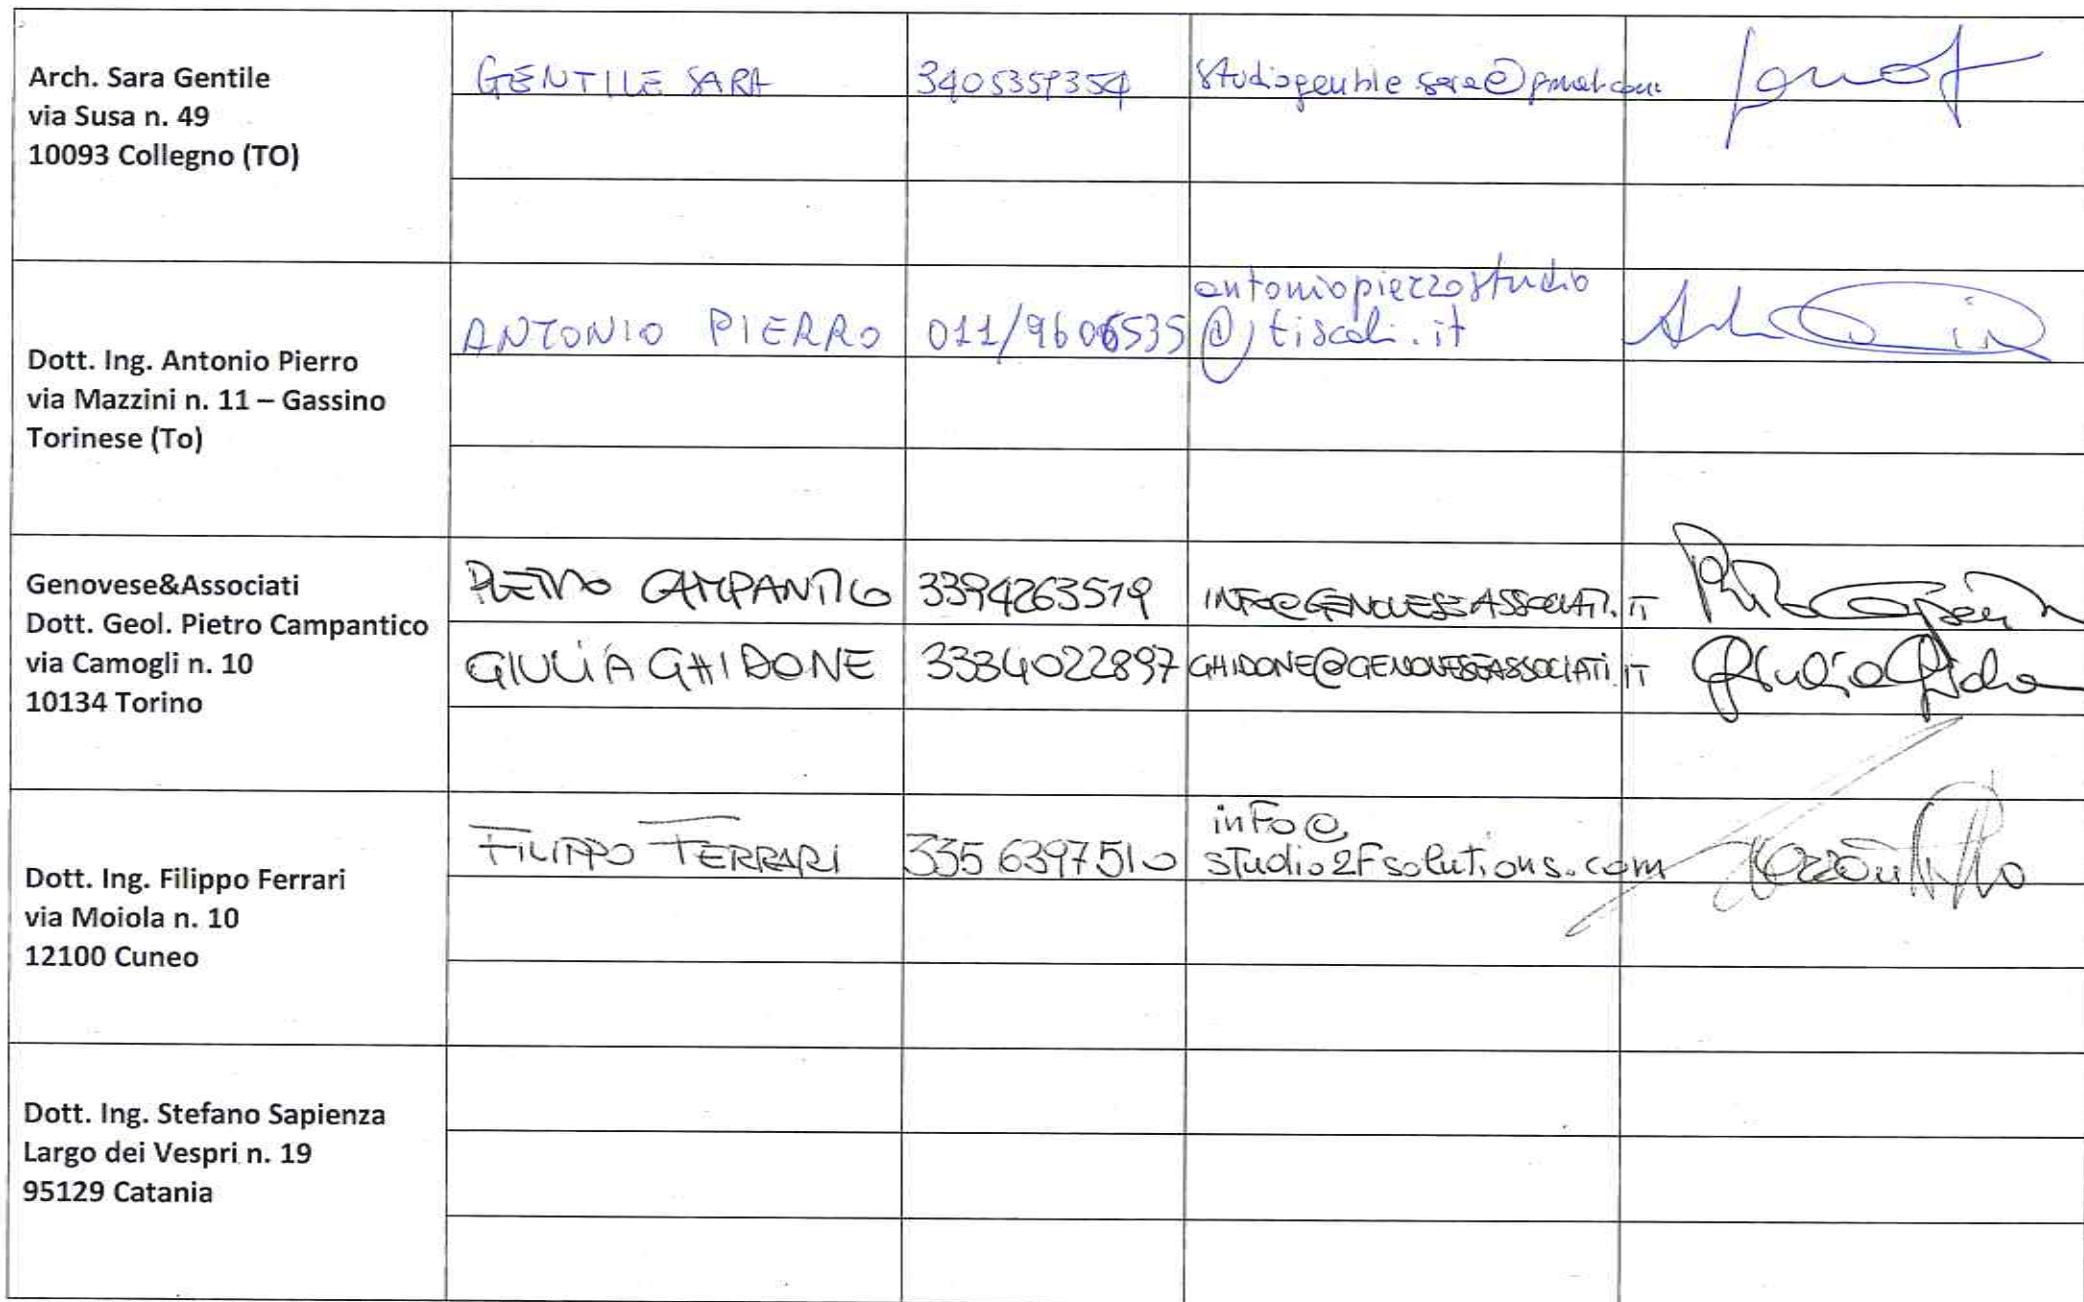 Arch. Sara Gentile
via Susa n. 49
10093 Collegno (TO)
GENTILE SARA
3405359354
studiogentile.sara@gmail.com
Dott. Ing. Antonio Pierro
via Mazzini n. 11 – Gassino
Torinese (To)
ANTONIO PIERRO
011/9606535
antoniopierrostudio
@tiscali.it
Genovese&Associati
Dott. Geol. Pietro Campantico
via Camogli n. 10
10134 Torino
PIETRO CAMPANTICO
3394263519
INFO@GENOVESEASSOCIATI.IT
GIULIA GHIDONE
3334022897
GHIDONE@GENOVESEASSOCIATI.IT
Giulia Ghido
Dott. Ing. Filippo Ferrari
via Moiola n. 10
12100 Cuneo
FILIPPO FERRARI
335 6397510
inFo@
studio2Fsolutions.com
Dott. Ing. Stefano Sapienza
Largo dei Vespri n. 19
95129 Catania